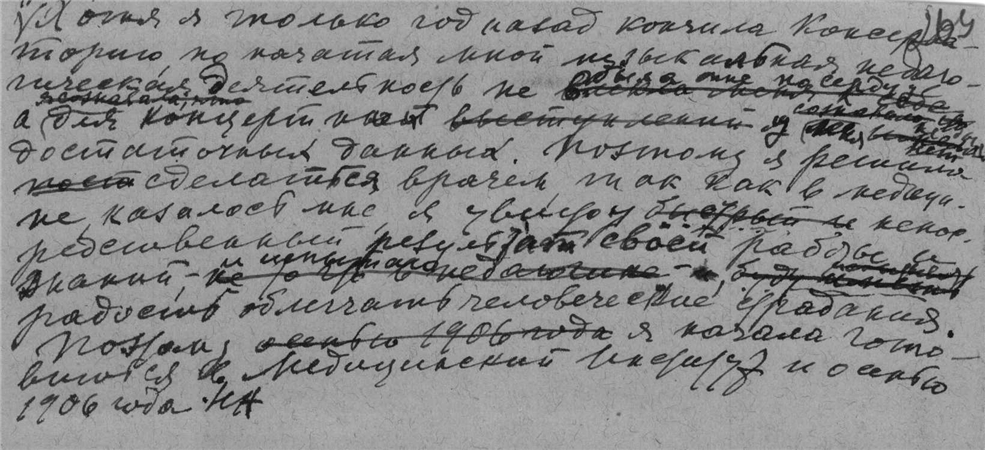 Хотя я только год назад кончила Консерва-
торию но начатая мной музыкальная педаго-
гическая деятельность не была мне по сердцу,
а для концертных выступлений я сознавала, что нет
достаточных данных. Поэтому я решила
сделаться врачем, так как в медици-
не, казалось мне, я увижу быстрый и непос
редственный результат своей работы и
знаний, и испытаю
радость облегчать человеческие страдания.
Поэтому осенью 1906 года я начала гото-
виться в Медицинский Институт и осенью
1906 года